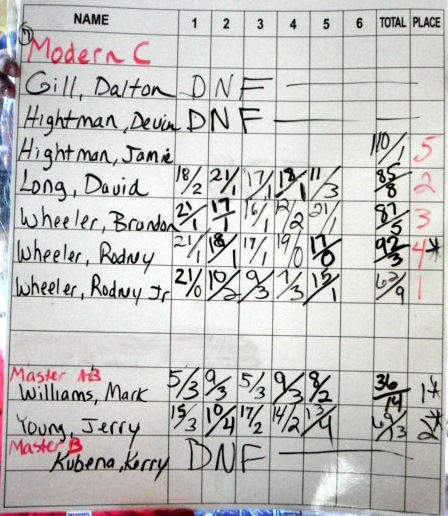 NAME 1 2 3 4 5 6 TOTAL PLACE
Modern C
Gill, Dalton DNF
Hightman, Devin DNF
Hightman, Jamie 110/1 5
Long, David 18/2 21/1 17/1 18/1 11/3 85/8 2
Wheeler, Brandon 21/1 17/1 16/1 12/2 21/1 87/5 3
Wheeler, Rodney 21/1 18/1 17/1 19/0 17/0 92/3 4*
Wheeler, Rodny Jr 21/0 10/2 9/3 7/3 15/1 62/9 1
Master AB
Williams, Mark 5/3 9/3 5/3 9/3 8/2 36/14 1*
Young, Jerry 15/3 10/4 17/2 14/2 13/4 2*
Master B
Kubena, Kerry DNF